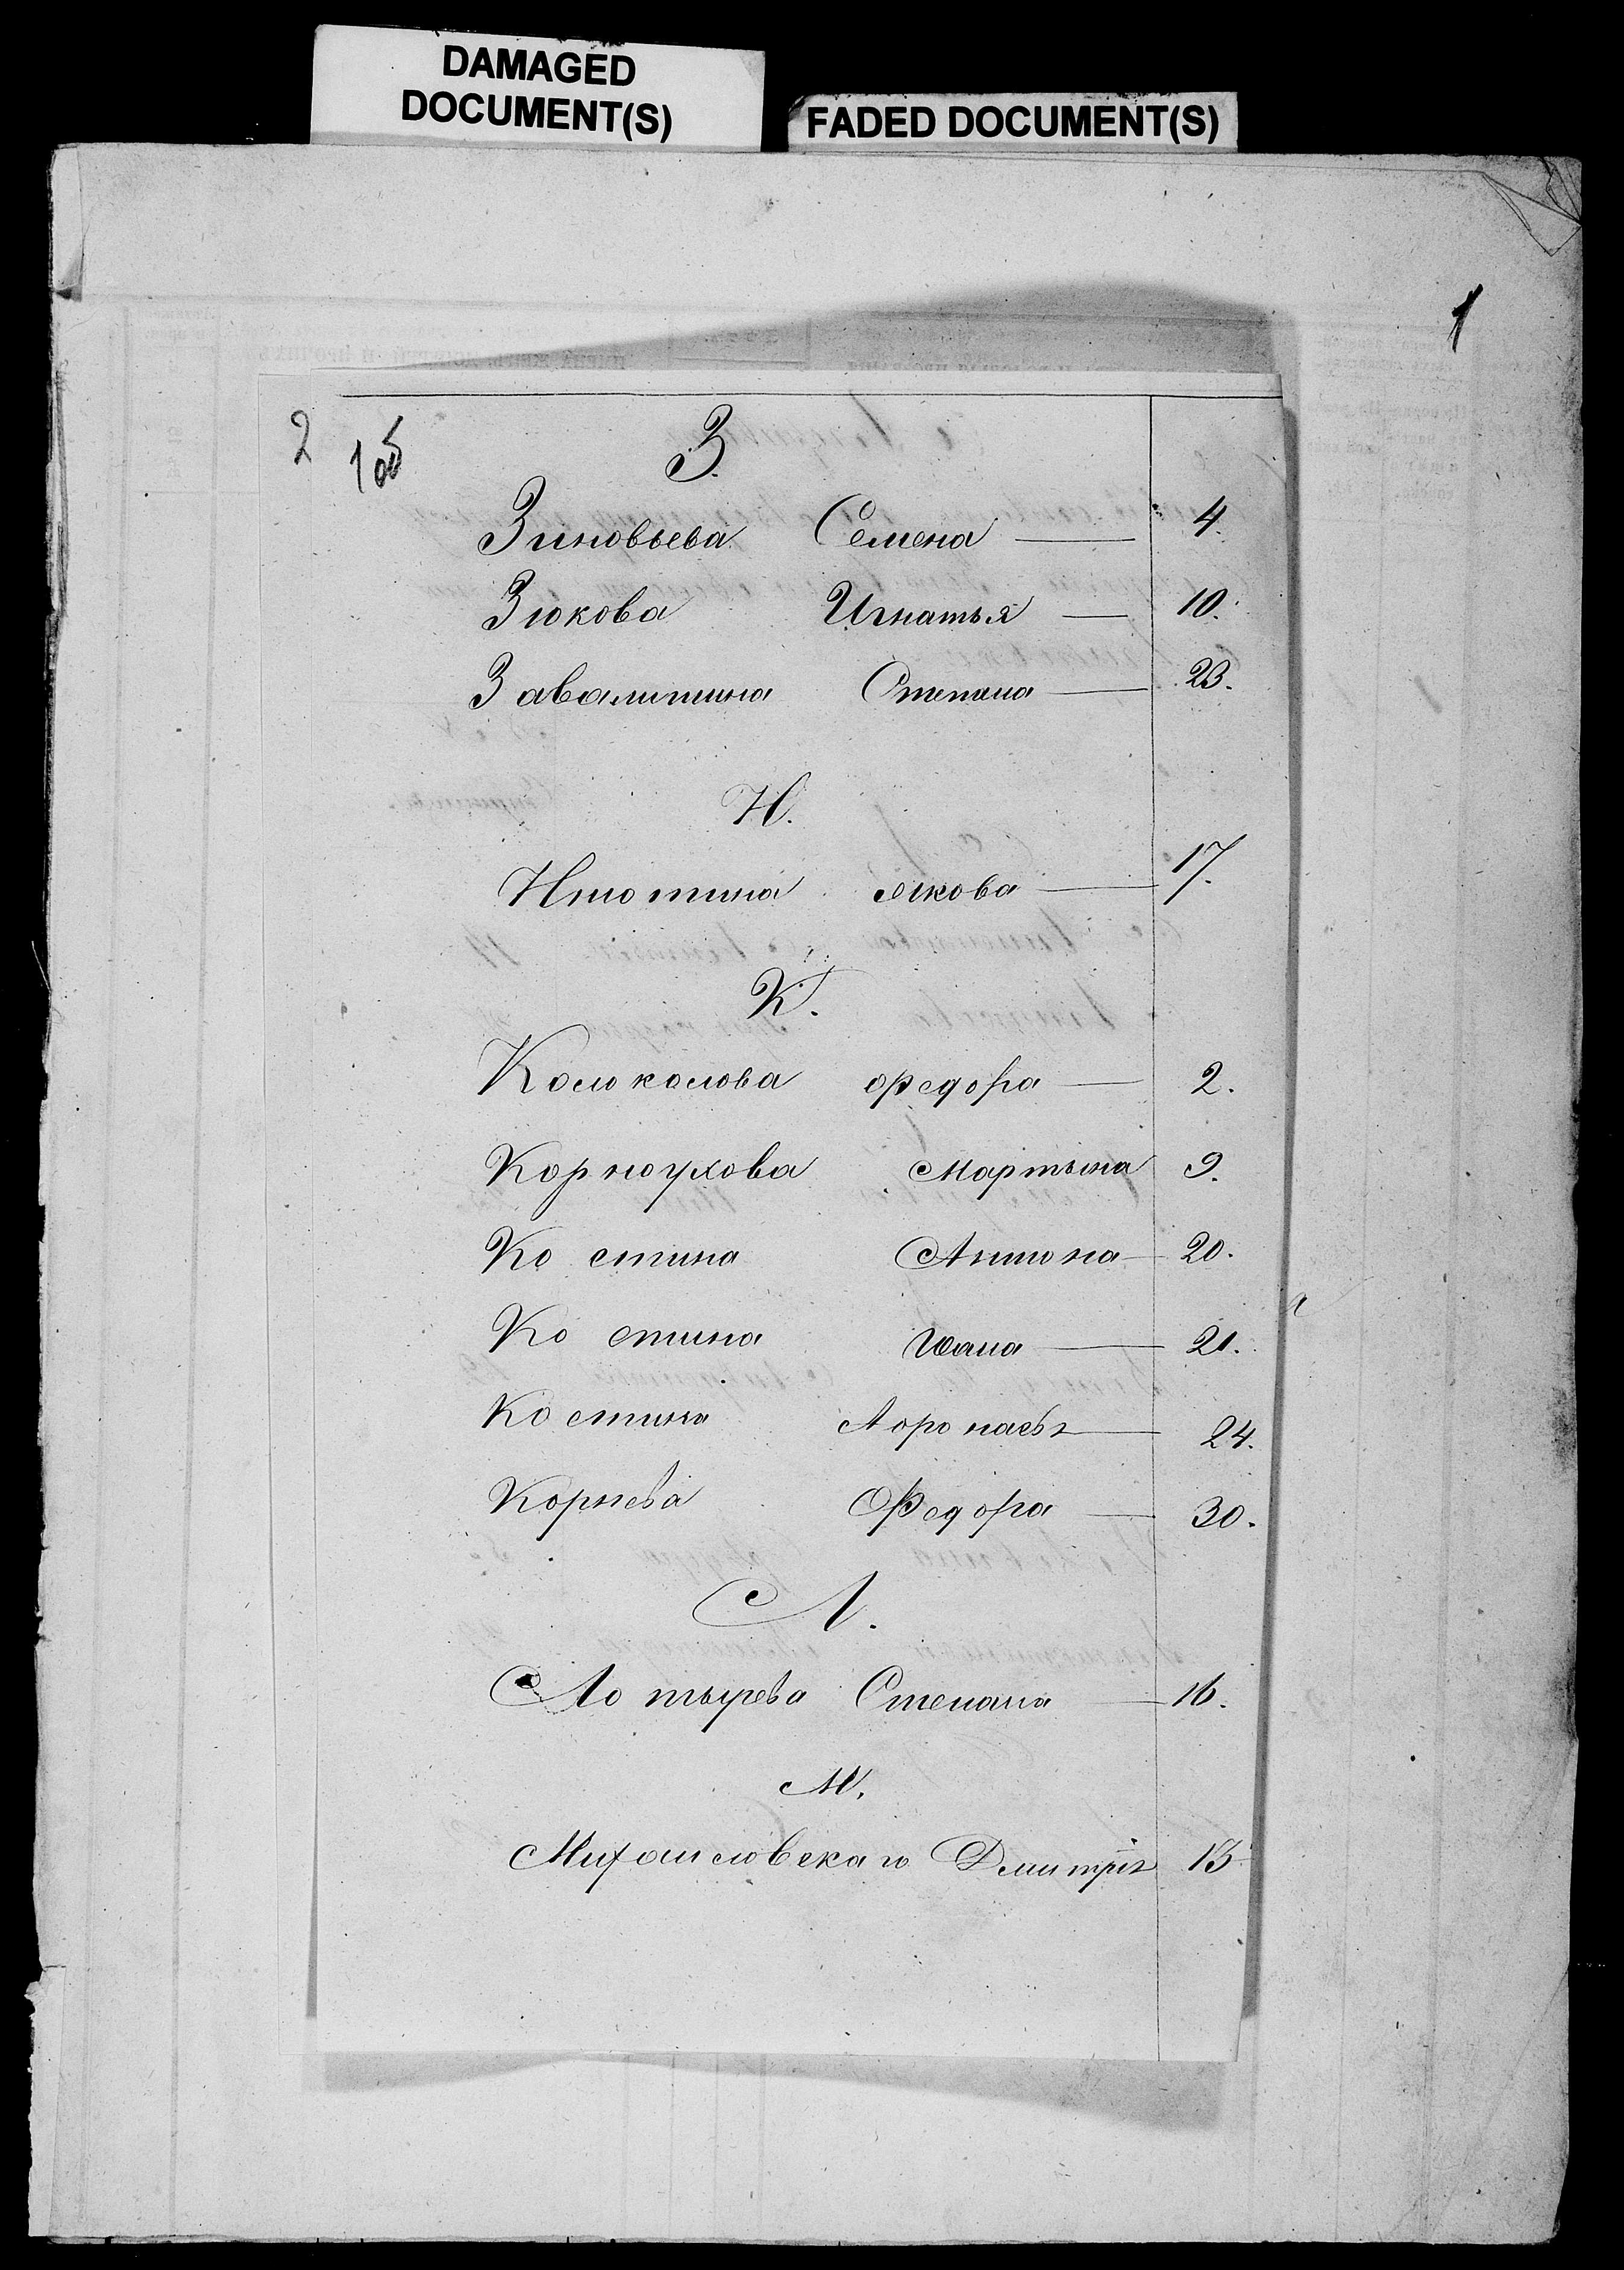 DAMAGED
DOCUMENT(S)
FADED DOCUMENT(S)
1
2
1об
З.
Зиновьева Семена — 4.
Зюкова Игнатья — 10.
Завалишина Степана — 23.
И.
Якова — 17.
К.
Колоколова Федора — 2.
Корноухова Мартына 9.
Костина Антона — 20.
Костина Ивана — 21.
Костина — 24.
Корнева Федора — 30.
Л.
Степана — 16.
М.
Михаиловскаго Дмитрія 13